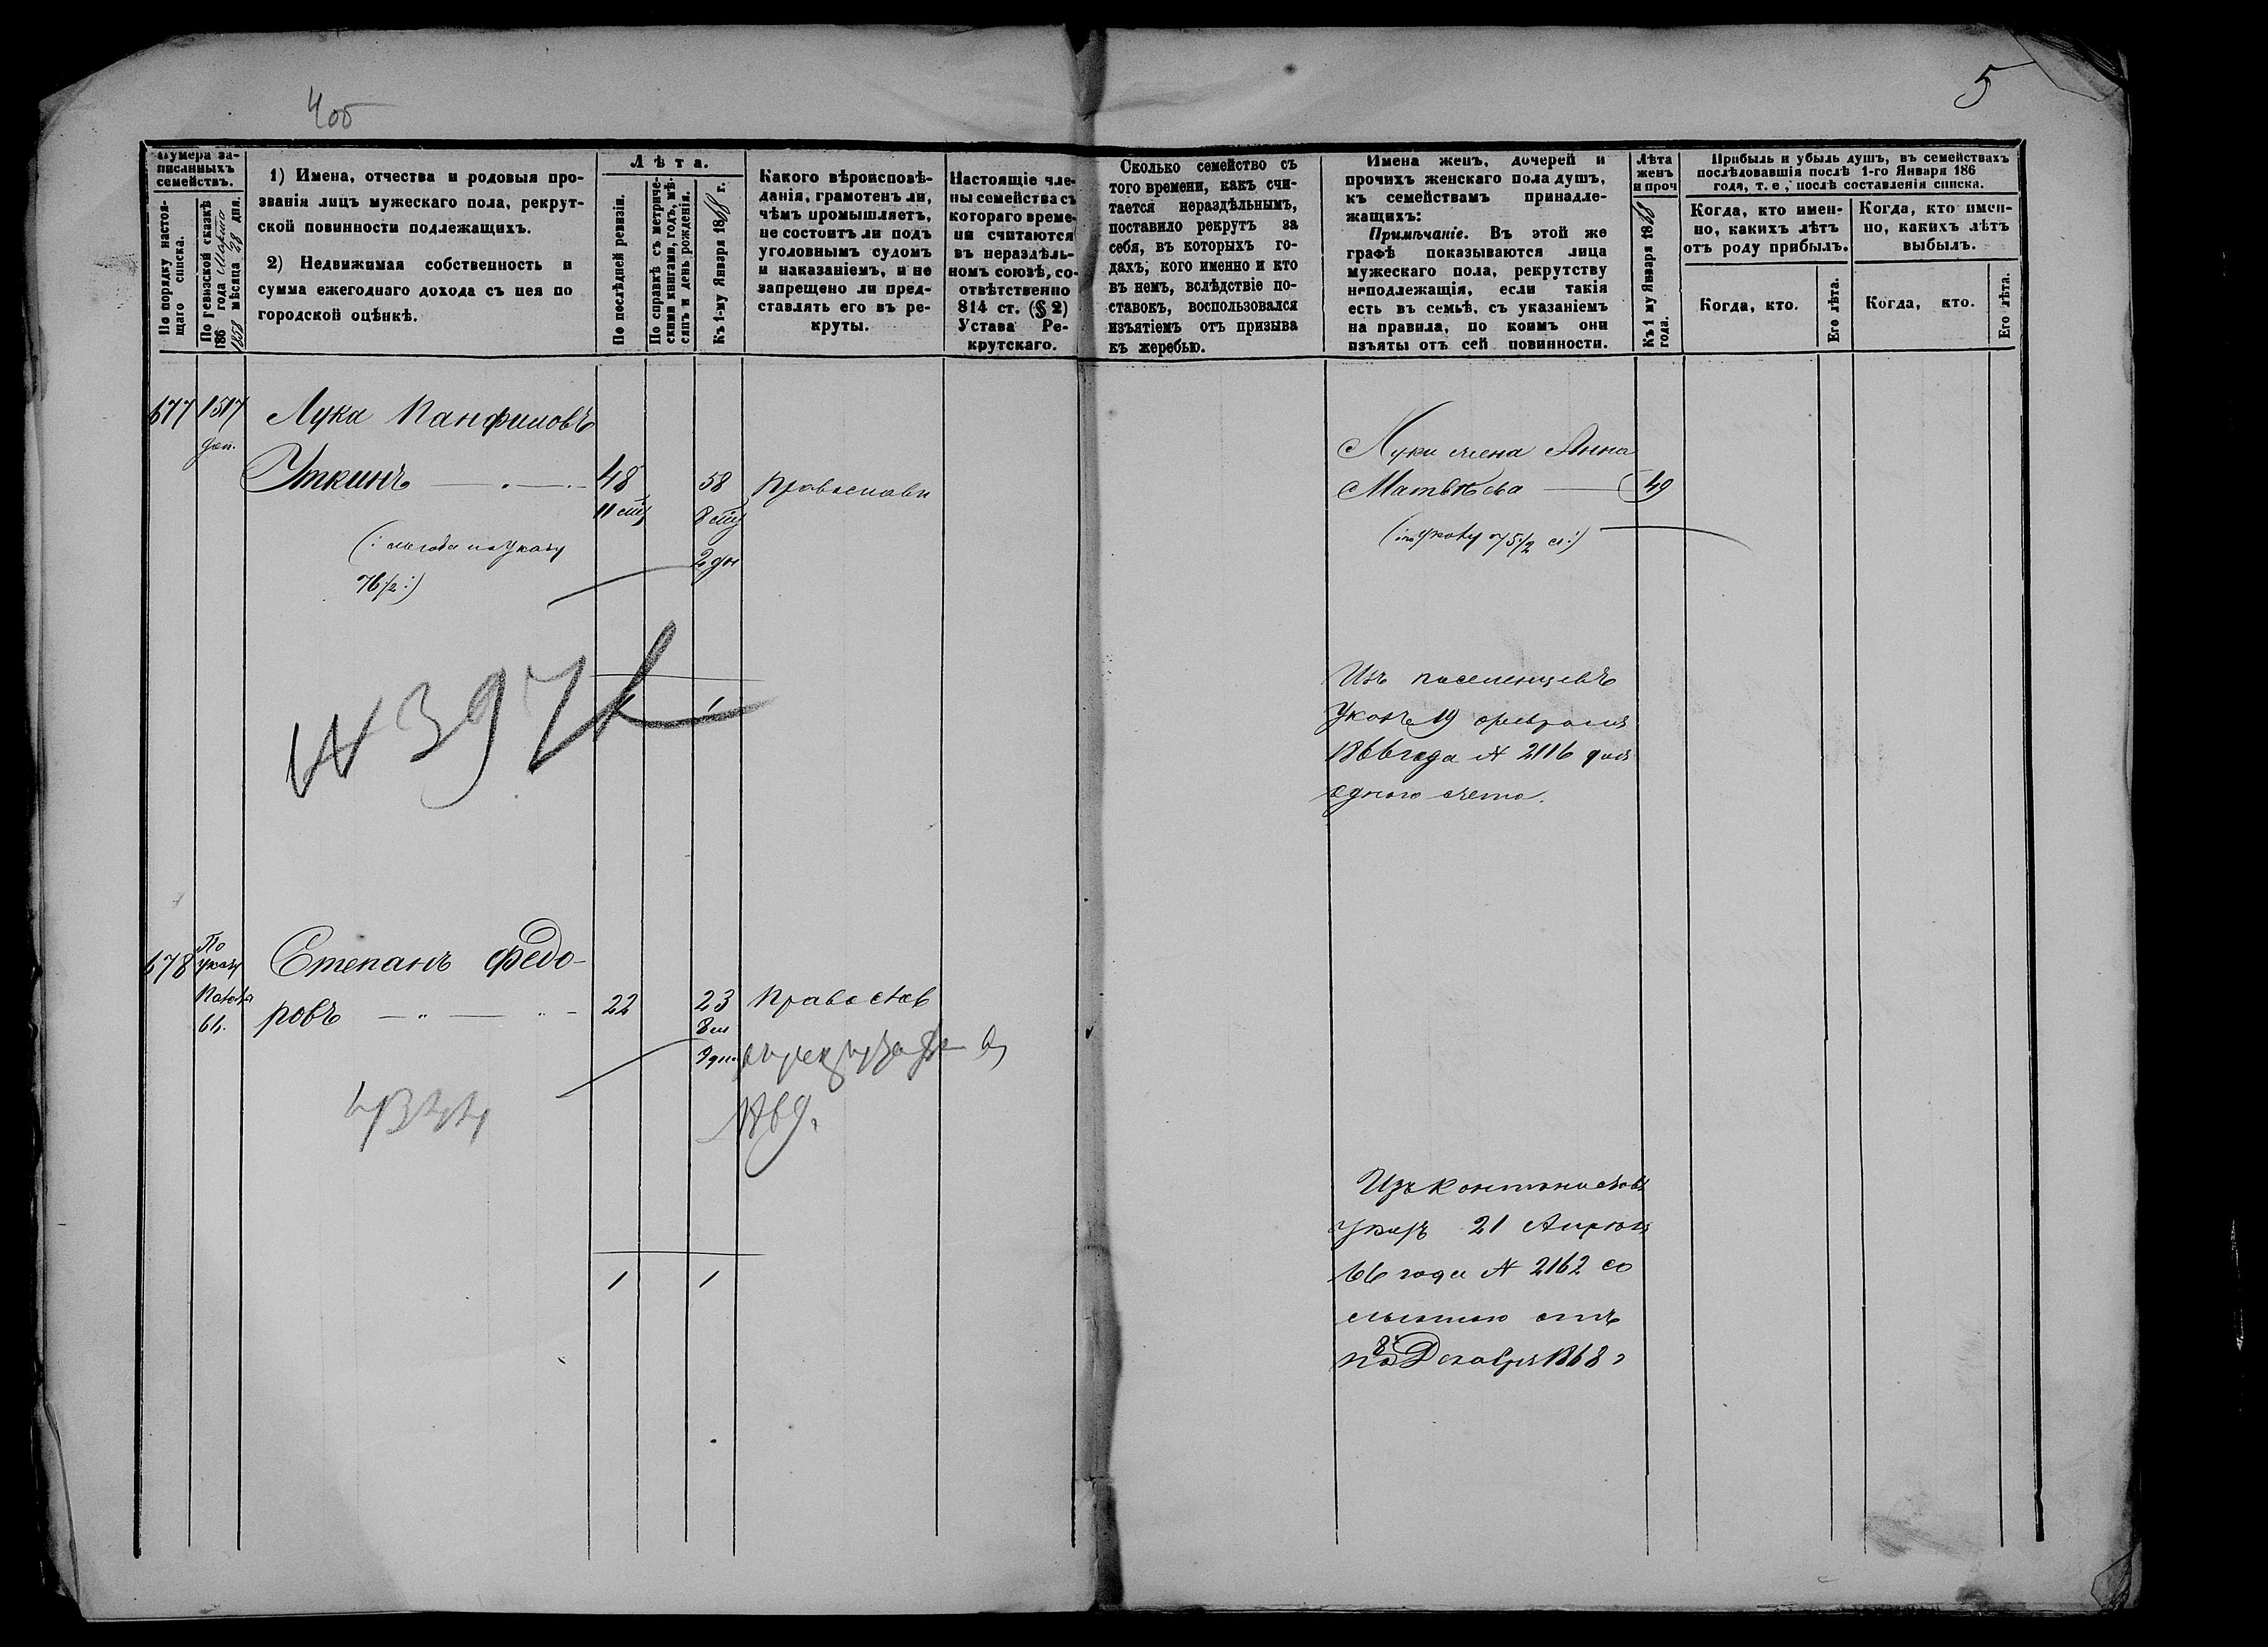 4об
5
Нумера за-
писанныхъ
семействъ.
По порядку настоя-
щаго списка.
По ревизской сказкѣ
186 года Марта
1858 мѣсяца 28 дня.
1) Имена, отчества и родовыя про-
званія лицъ мужескаго пола, рекрут-
ской повинности подлежащихъ.
2) Недвижимая собственность и
сумма ежегоднаго дохода съ нея по
городской оцѣнкѣ.
Лѣта.
По послѣдней ревизіи.
По справкѣ съ метриче-
скими книгами, годъ, мѣ-
сяцъ и день рожденія.
Къ 1-му Января 1868 г.
Какого вѣроисповѣ-
данія, грамотенъ ли,
чѣмъ промышляетъ,
не состоитъ ли подъ
уголовнымъ судомъ
и наказаніемъ, и не
запрещено ли пред-
ставлять его въ ре-
круты.
Настоящіе чле-
ны семейства съ
котораго време-
ни считаются
въ нераздѣль-
номъ союзѣ, со-
отвѣтственно
814 ст. (§ 2)
Устава Ре-
крутскаго.
Сколько семейство съ
того времени, какъ счи-
тается нераздѣльнымъ,
поставило рекрутъ за
себя, въ которыхъ го-
дахъ, кого именно и кто
въ немъ, вслѣдствіе по-
ставокъ, воспользовался
изъятіемъ отъ призыва
къ жеребью.
Имена женъ, дочерей и
прочихъ женскаго пола душъ,
къ семействамъ принадле-
жащихъ:
Примѣчаніе. Въ этой же
графѣ показываются лица
мужескаго пола, рекрутству
неподлежащія, если такія
есть въ семьѣ, съ указаніемъ
на правила, по коимъ они
изъяты отъ сей повинности.
Лѣта
женъ
и проч
Къ 1 му Января 1868
года.
Прибыль и убыль душъ, въ семействахъ
послѣдовавшія послѣ 1-го Января 186
года, т. е., послѣ составленія списка.
Когда, кто имен-
но, какихъ лѣтъ
отъ роду прибылъ.
Когда, кто имен-
но, какихъ лѣтъ
выбылъ.
Когда, кто.
Его лѣта.
Когда, кто.
Его лѣта.
677 1517 Лука Панфиловъ
доп.
Уткинъ 48 58 Православн
11 мѣ 8 мѣ
2 дн
по указу
76/2
Луки жена Анна
Матвѣева 49
(: по указу 75/2 :)
N 397
1 1
Изъ поселенцевъ
Указъ 19 февраля
1866 года N 2116 для
одного счета.
678 По
указу
Палаты
66.
Степанъ Федо-
ровъ 22 23 Православ
8 м
9 дн
1 1
Изъ кантонистовъ
указъ 21 Апрѣля
66 года N 2162 со
льготою отъ
по 8 Декабря 1868 г